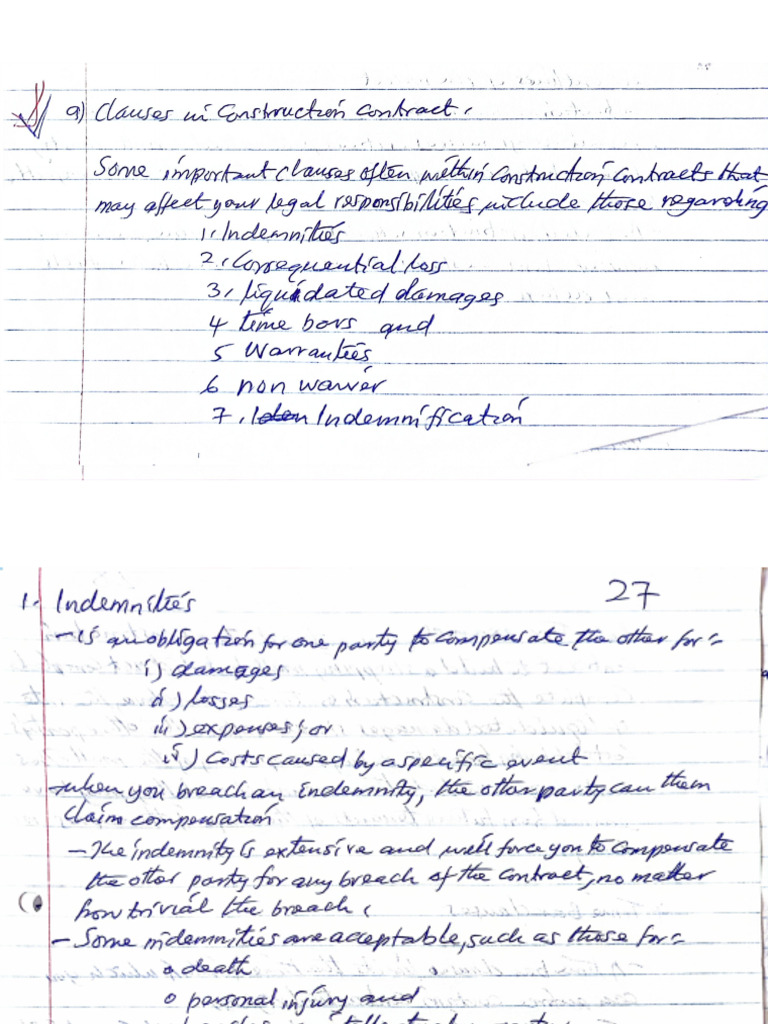 a) Clauses in Construction Contract.
Some important clauses often within construction contracts that
may affect your legal responsibilities, include those regarding
1. Indemnities
2. Consequential loss
3. liquidated damages
4 time bars and
5 Warranties
6 non waiver
7. Indemnification
27
1. Indemnities
- is an obligation for one party to compensate the other for:-
i) damages
ii) losses
iii) expenses; or
iv) costs caused by a specific event
- when you breach an indemnity, the other party can then
claim compensation
- The indemnity is extensive and will force you to compensate
the other party for any breach of the contract, no matter
how trivial the breach.
- Some indemnities are acceptable, such as those for:-
o death
o personal injury and